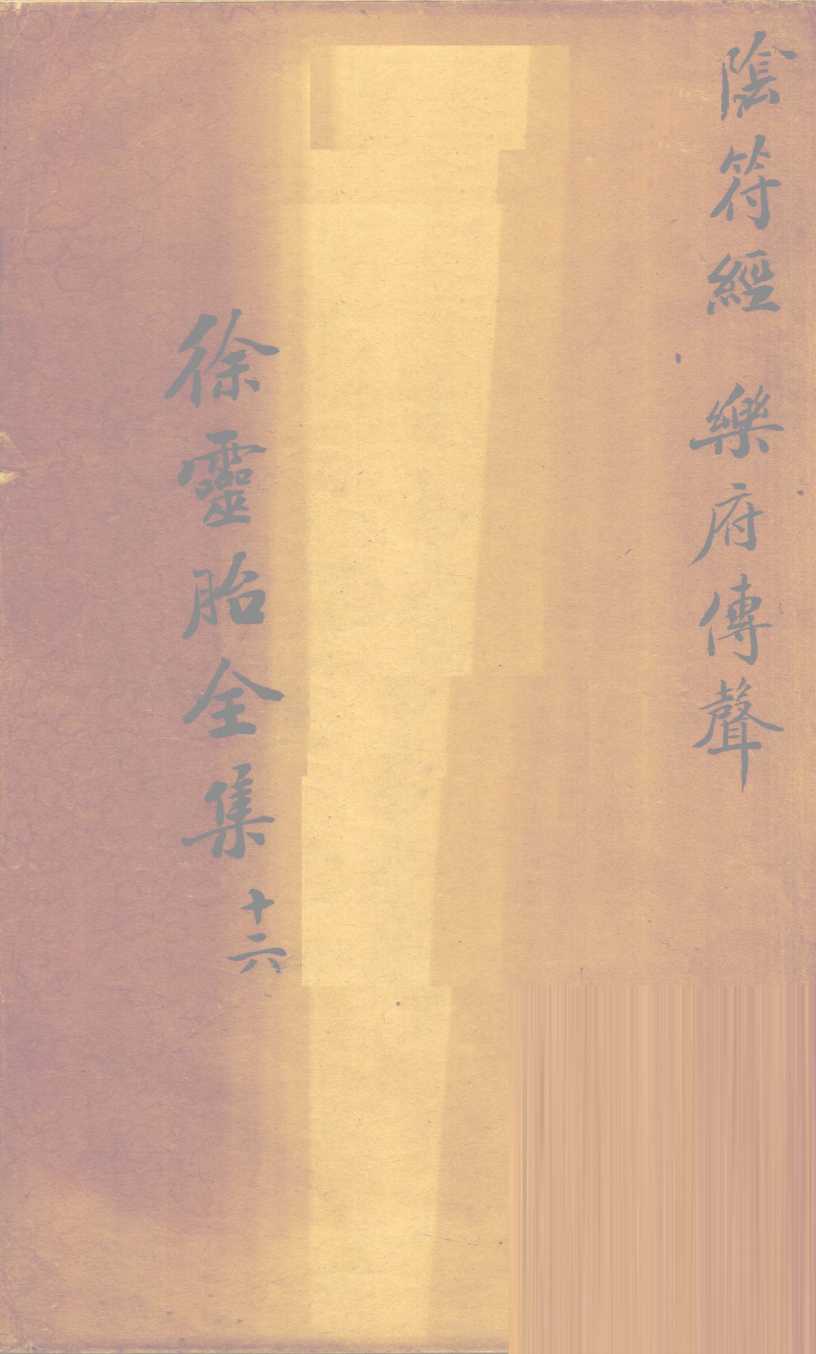 陰符經 樂府傳聲
徐靈胎全集 十六